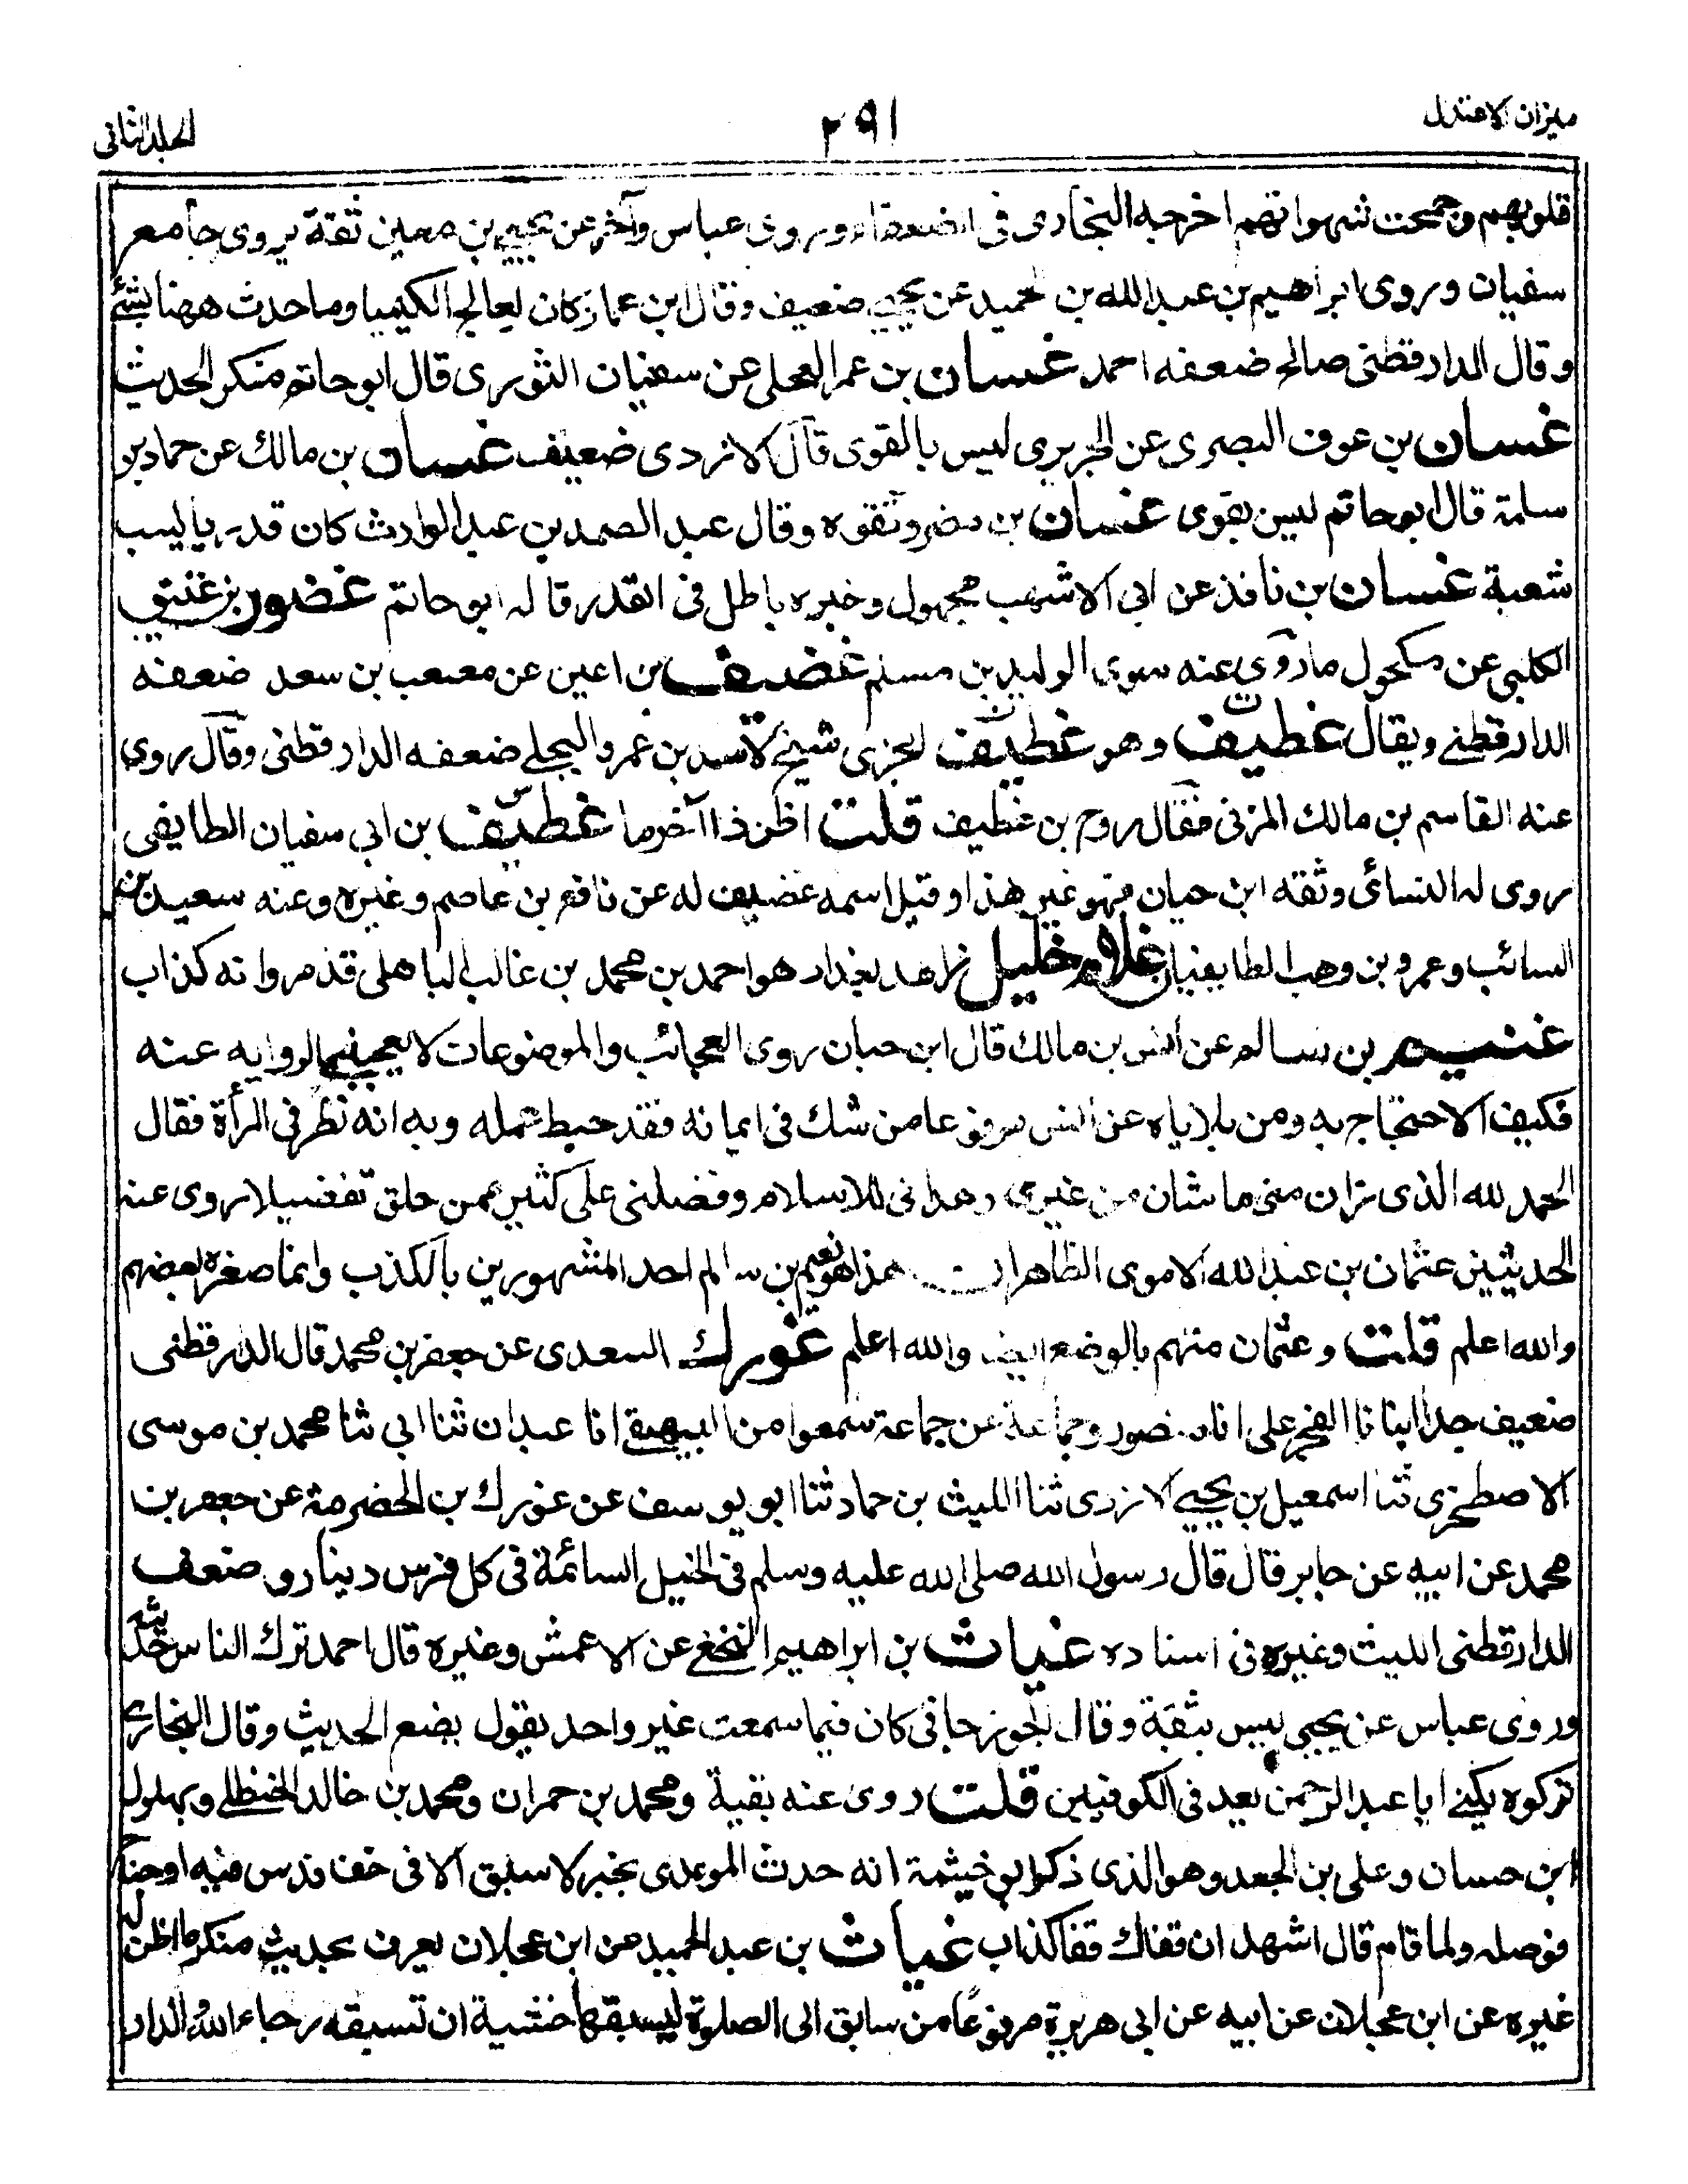 ميزان الاعتدل
٢٩١
الجلد الثانى
قلوبهم وجمحت شهواتهم اخرجه البخارى فى الضعفاء وروى عباس وآخر عن يحيى بن معين ثقة يروى جامع
سفيان وروى ابراهيم بن عبد الله بن الحميد عن يحيى ضعيف وقال ابن عمار كان يعالج الكيميا وما حدث ههنا بشئ
وقال الدارقطنى صالح ضعفه احمد غسان بن عمر العجلى عن سفيان الثورى قال ابو حاتم منكر الحديث
غسان بن عوف البصرى عن الجريرى ليس بالقوى قال الازدى ضعيف غسان بن مالك عن حماد بن
سلمة قال ابو حاتم ليس بقوى غسان بن مضر وثقوه وقال عبد الصمد بن عبد الوارث كان قدريا ليب
شعبة غسان بن نافذ عن ابى الاشهب مجهول وخبره باطل فى القدر قاله ابو حاتم غضور بن عتيق
الكلبى عن مكحول ما روى عنه سوى الوليد بن مسلم غضيف بن اعين عن مصعب بن سعد ضعفه
الدارقطنے ويقال غطيف وهو غطيف الجزرى شيخ لاسد بن عمرو البجلے ضعفه الدارقطنى وقال روى
عنه القاسم بن مالك المزنى فقال روح بن غطيف قلت اظن ذا آخرما غطيف بن ابى سفيان الطايفى
روى له النسائى وثقه ابن حبان فهو غير هذا وقيل اسمه غضيف له عن نافع بن عاصم وغيره وعنه سعيد بن
السائب وعمرو بن وهب الطايفيان غلام خليل زاهد بغداد هو احمد بن محمد بن غالب الباهلى قد مر وانه كذاب
غنيم بن سالم عن أنس بن مالك قال ابن حبان روى العجائب والموضوعات لا يعجبنى الرواية عنه
فكيف الاحتجاج به ومن بلاياه عن انس مرفوعا من شك فى ايمانه فقد حبط عمله وبه انه نظر فى المرأة فقال
الحمد لله الذى زان منى ما شان من غيرى وهدانى للاسلام وفضلنى على كثير ممن خلق تفضيلا روى عنه
الحديثين عثمان بن عبد الله الاموى الظاهر ان هذا هو نعيم بن سالم احد المشهورين بالكذب وانما صغره بعضهم
والله اعلم قلت وعثمان متهم بالوضع ايضا والله اعلم غورك السعدى عن جعفر بن محمد قال الدارقطنى
ضعيف جدا انبانا الفخر على انا منصور وجماعة عن جماعة سمعوا من البيهقے انا عبدان ثنا ابى ثنا محمد بن موسى
الاصطخرى ثنا اسمعيل بن يحيے الازدى ثنا الليث بن حماد ثنا ابو يوسف عن غورك بن الحضرمة عن جعفر بن
محمد عن ابيه عن جابر قال قال رسول الله صلى الله عليه وسلم فى الخيل السائمة فى كل فرس دينار وضعف
الدارقطنى الليث وغيره فى اسناده غياث بن ابراهيم النخعے عن الاعمش وغيره قال احمد ترك الناس حديثه
وروى عباس عن يحيى ليس بثقة وقال الجوزجانى كان فيما سمعت غير واحد يقول يضع الحديث وقال البخارے
تركوه يكنے ابا عبد الرحمن يعد فى الكوفيين قلت روى عنه بقية ومحمد بن حمران ومحمد بن خالد الحنظلے وبهلول
ابن حسان وعلى بن الجعد وهو الذى ذكر ابو خيثمة انه حدث المهدى بخبر لا سبق الا فى خف او حافر او جناح
فوصله ولما قام قال اشهد ان قفاك قفا كذاب غياث بن عبد الحميد عن ابن عجلان يعرف بحديث منكر ما اظن له
غيره عن ابن عجلان عن ابيه عن ابى هريرة مرفوعا من سابق الى الصلوة ليسبقها خشية ان تسبقه رجاء الله والدار